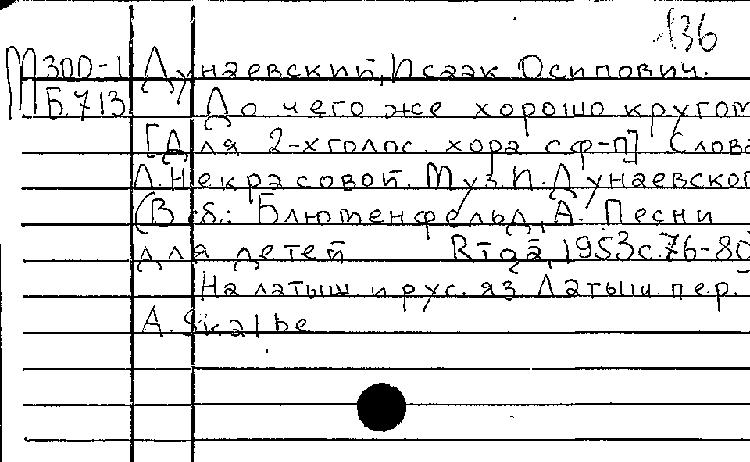 136
М 300-1 Дунаевский, Исаак Осипович.
Б.713 До чего же хорошо кругом
[Для 2-хголос. хора с ф-п] Слова
Л. Некрасовой. Муз И. Дунаевског
(В сб.: Блюменфельд, А. Песни
для детей Rīgā, 1953 с. 76-80
На латыш. и рус. яз Латыш. пер.
A. Skalbe